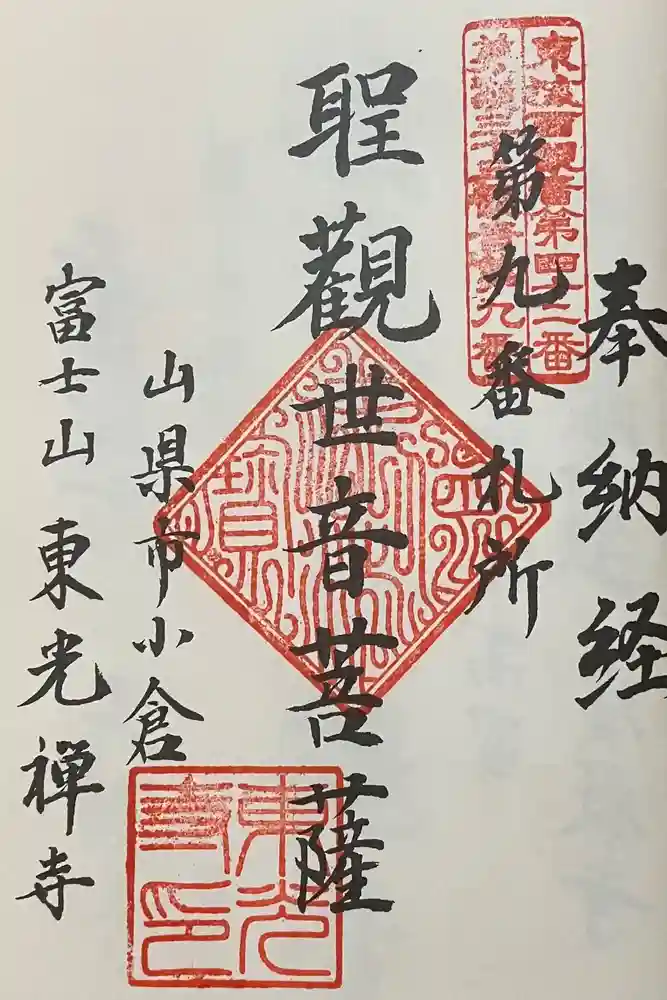 奉納経
東海百観音第四十二番
美濃三十三観音第九番
第九番札所
聖觀世音菩薩
山県市小倉
富士山 東光禅寺
東光寺印